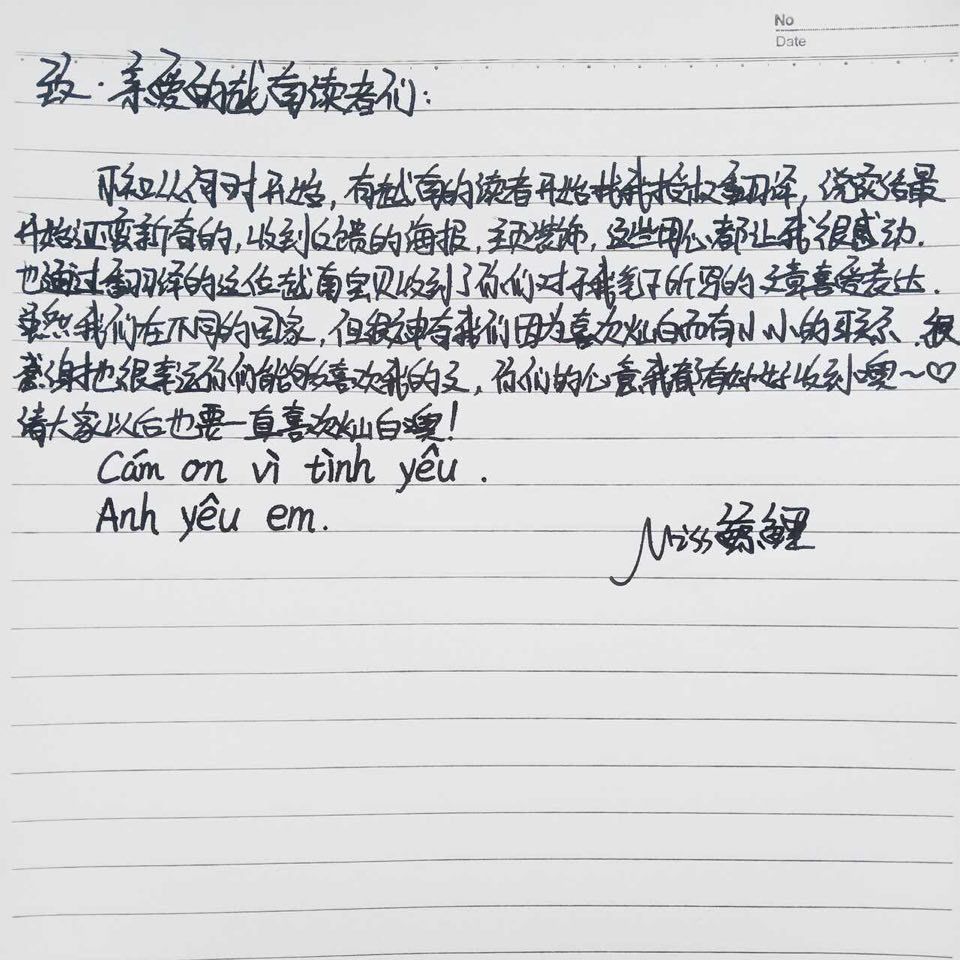 No
Date
致·亲爱的越南读者们：
不知从何时开始，有越南的读者开始找我授权翻译，说实话最
开始还蛮新奇的，收到反馈的海报，主页装饰，这些用心都让我很感动.
也通过翻译的这位越南宝贝收到了你们对于我笔下所写的文章喜爱表达.
虽然我们在不同的国家，但很神奇我们因为喜欢灿白而有小小的联系.很
感谢也很幸运你们能够喜欢我的文，你们的心意我都有好好收到噢～♡
请大家以后也要一直喜欢灿白噢！
Cám ơn vì tình yêu.
Anh yêu em.
Miss鲸鲤